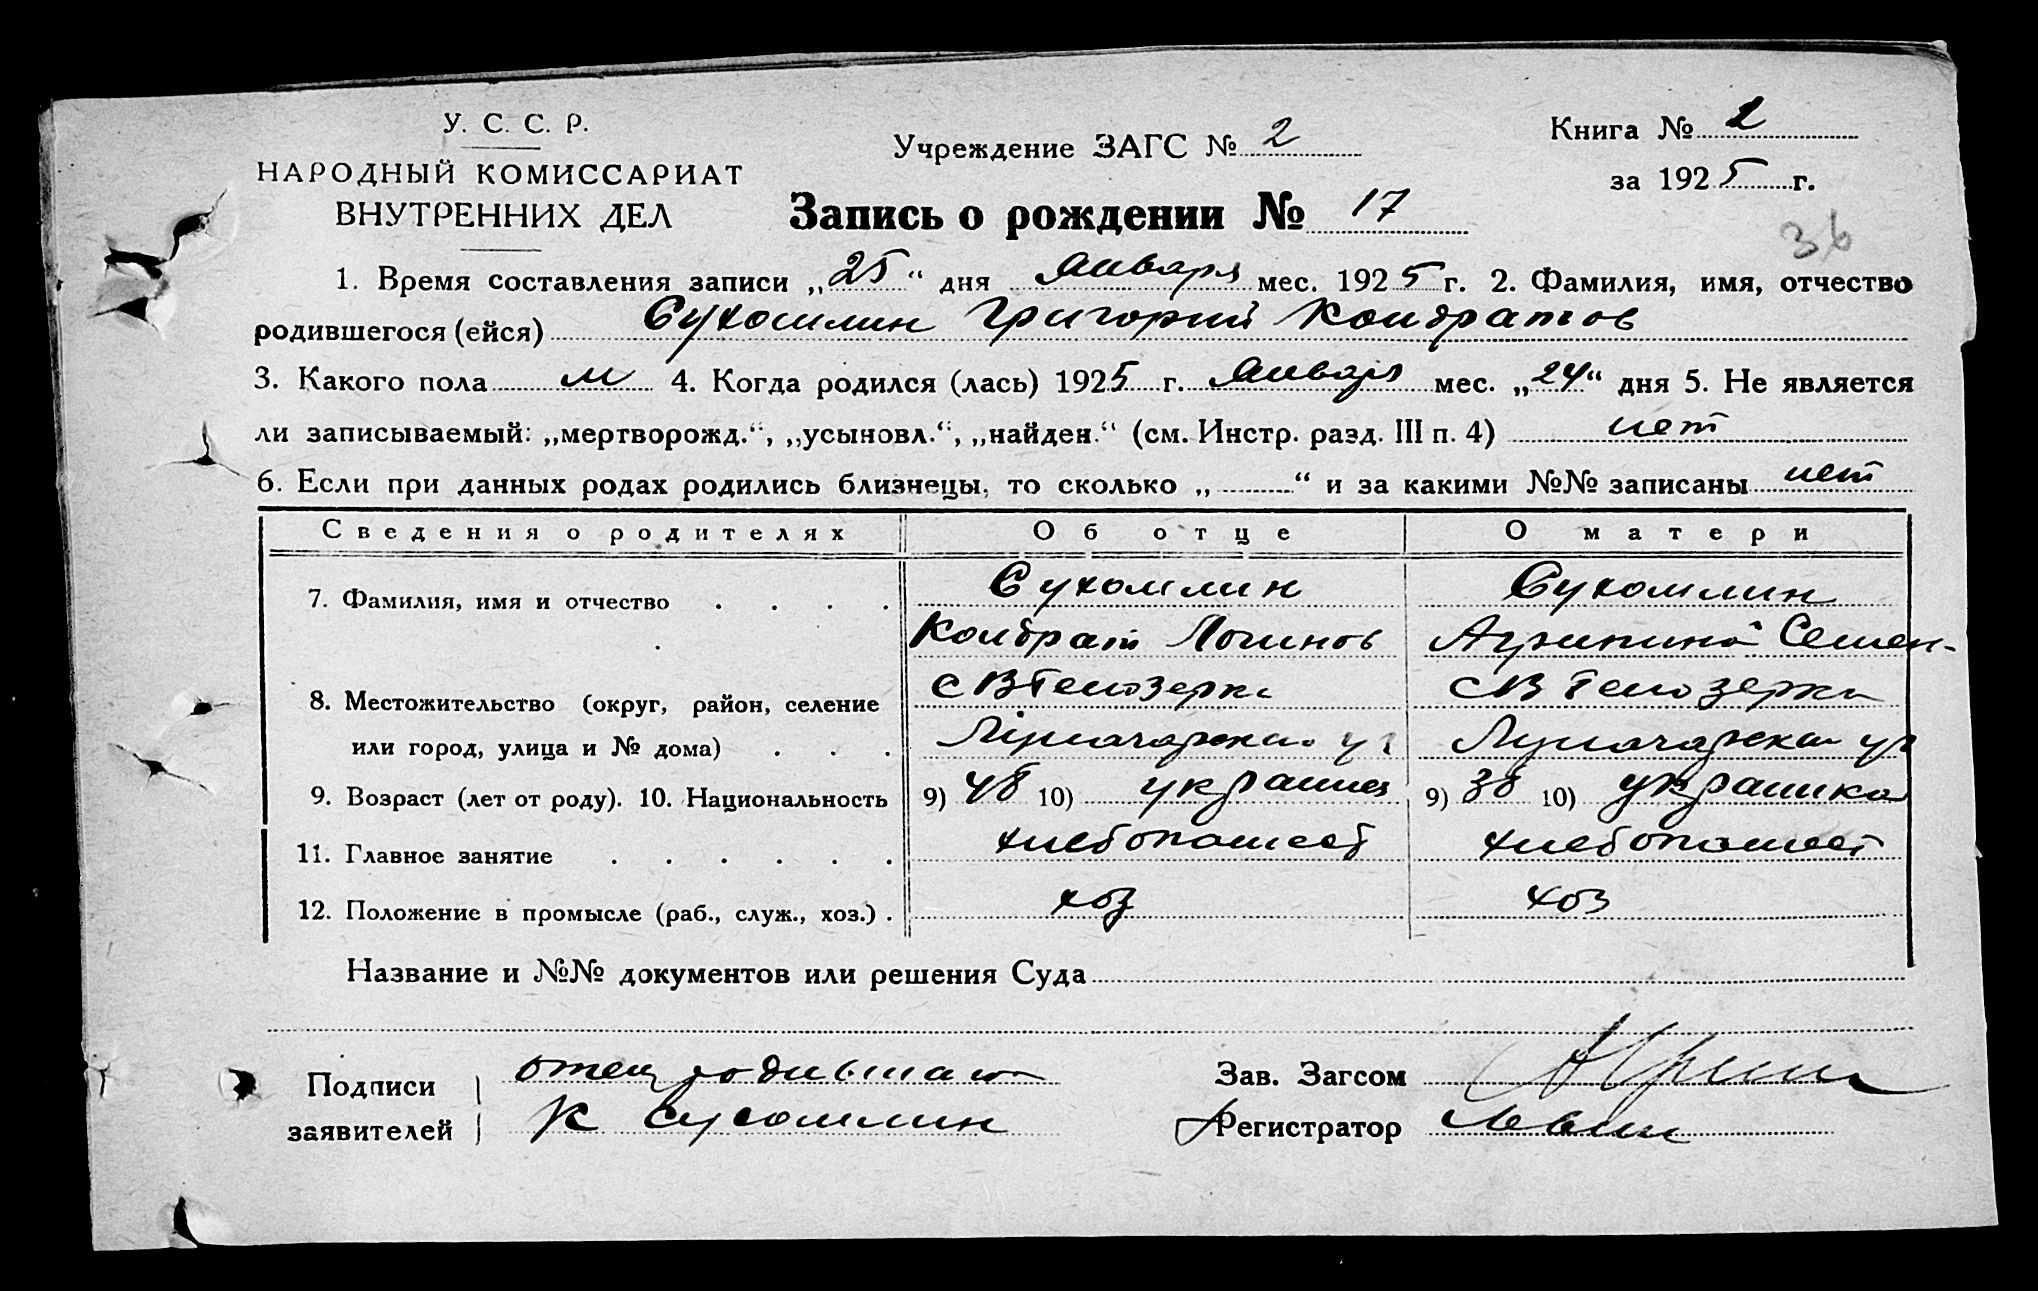 У. С. С. Р.
НАРОДНЫЙ КОМИССАРИАТ
ВНУТРЕННИХ ДЕЛ
Учреждение ЗАГС № 2
Книга № 2
за 1925 г.
Запись о рождении № 17
36
1. Время составления записи „25“ дня Января мес. 1925 г. 2. Фамилия, имя, отчество
родившегося (ейся) Сухомлин Григорий Кондратов
3. Какого пола м 4. Когда родился (лась) 1925 г. Января мес. „24“ дня 5. Не является
ли записываемый: „мертворожд.“, „усыновл.“, „найден.“ (см. Инстр. разд. III п. 4) нет
6. Если при данных родах родились близнецы, то сколько „ “ и за какими №№ записаны нет
Сведения о родителях Об отце О матери
7. Фамилия, имя и отчество . . . . Сухомлин Сухомлин
Кондрат Логинов Агрипина Семен-
8. Местожительство (округ, район, селение с Белозерка с Белозерка
или город, улица и № дома) . . . Луначарская ул Луначарская ул
9. Возраст (лет от роду). 10. Национальность 9) 48 10) украинец 9) 38 10) украинка
11. Главное занятие . . . . . . хлебопашест хлебопашест
12. Положение в промысле (раб., служ., хоз.) . хоз хоз
Название и №№ документов или решения Суда
Подписи заявителей отец
К Сухомлин
Зав. Загсом
Регистратор Левин